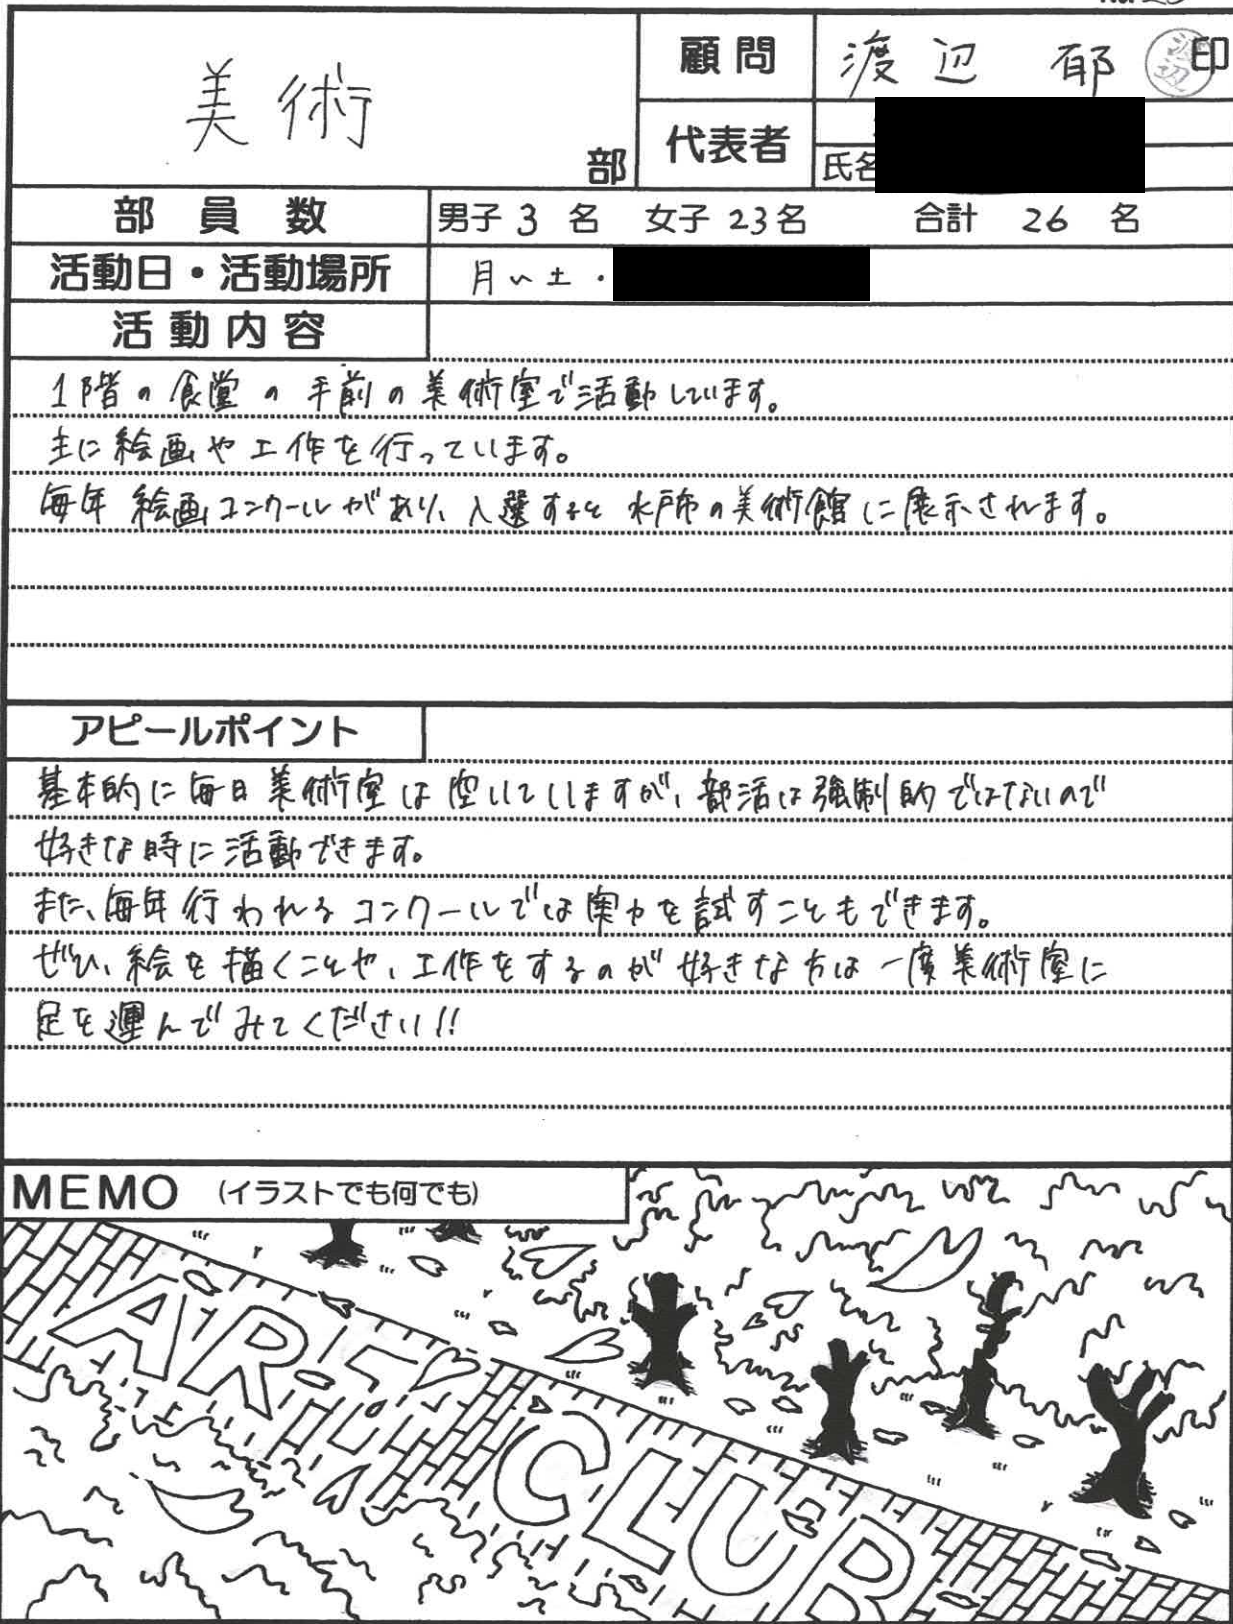 美術 部
顧問 渡辺 郁 渡辺 印
代表者
氏名
部員数 男子 3 名 女子 23名 合計 26 名
活動日・活動場所 月〜土・
活動内容
1階の食堂の手前の美術室で活動しています。
主に絵画や工作を行っています。
毎年絵画コンクールがあり、入選すると水戸市の美術館に展示されます。
アピールポイント
基本的に毎日美術室は空いていますが、部活は強制的ではないので
好きな時に活動できます。
また、毎年行われるコンクールでは実力を試すこともできます。
ぜひ、絵を描くことや、工作をするのが好きな方は一度美術室に
足を運んでみてください!!
MEMO (イラストでも何でも)
ART CLUB